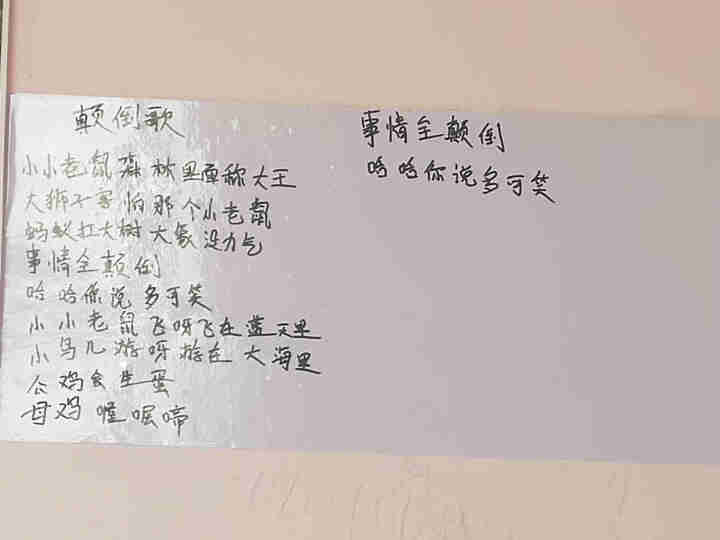 颠倒歌
小小老鼠森林里面称大王
大狮子害怕那个小老鼠
蚂蚁扛大树大象没力气
事情全颠倒
哈哈你说多可笑
小小老鼠飞呀飞在蓝天里
小鸟儿游呀游在大海里
公鸡会生蛋
母鸡喔喔啼
事情全颠倒
哈哈你说多可笑